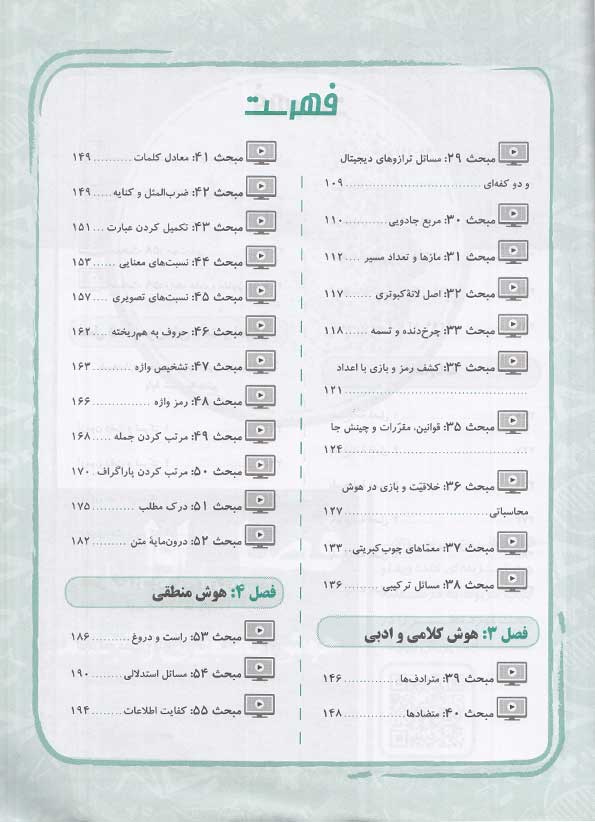 فهرست
مبحث ۲۹: مسائل ترازوهای دیجیتال
و دو کفه‌ای ........................ ۱۰۹
مبحث ۳۰: مربع جادویی ............ ۱۱۰
مبحث ۳۱: مازها و تعداد مسیر .... ۱۱۲
مبحث ۳۲: اصل لانهٔ کبوتری ....... ۱۱۷
مبحث ۳۳: چرخ‌دنده و تسمه ...... ۱۱۸
مبحث ۳۴: کشف رمز و بازی با اعداد
........................ ۱۲۱
مبحث ۳۵: قوانین، مقرّرات و چینش جا
........................ ۱۲۴
مبحث ۳۶: خلاقیّت و بازی در هوش
محاسباتی ........................ ۱۲۷
مبحث ۳۷: معمّاهای چوب‌کبریتی .. ۱۳۳
مبحث ۳۸: مسائل ترکیبی ......... ۱۳۶
فصل ۳: هوش کلامی و ادبی
مبحث ۳۹: مترادف‌ها .............. ۱۴۶
مبحث ۴۰: متضادها ................ ۱۴۸
مبحث ۴۱: معادل کلمات .......... ۱۴۹
مبحث ۴۲: ضرب‌المثل و کنایه ..... ۱۴۹
مبحث ۴۳: تکمیل کردن عبارت ... ۱۵۱
مبحث ۴۴: نسبت‌های معنایی ...... ۱۵۳
مبحث ۴۵: نسبت‌های تصویری .... ۱۵۷
مبحث ۴۶: حروف به هم‌ریخته .... ۱۶۲
مبحث ۴۷: تشخیص واژه .......... ۱۶۳
مبحث ۴۸: رمز واژه ............... ۱۶۶
مبحث ۴۹: مرتب کردن جمله ..... ۱۶۸
مبحث ۵۰: مرتب کردن پاراگراف .. ۱۷۰
مبحث ۵۱: درک مطلب ........... ۱۷۵
مبحث ۵۲: درون‌مایهٔ متن ......... ۱۸۲
فصل ۴: هوش منطقی
مبحث ۵۳: راست و دروغ .......... ۱۸۶
مبحث ۵۴: مسائل استدلالی ........ ۱۹۰
مبحث ۵۵: کفایت اطلاعات ........ ۱۹۴